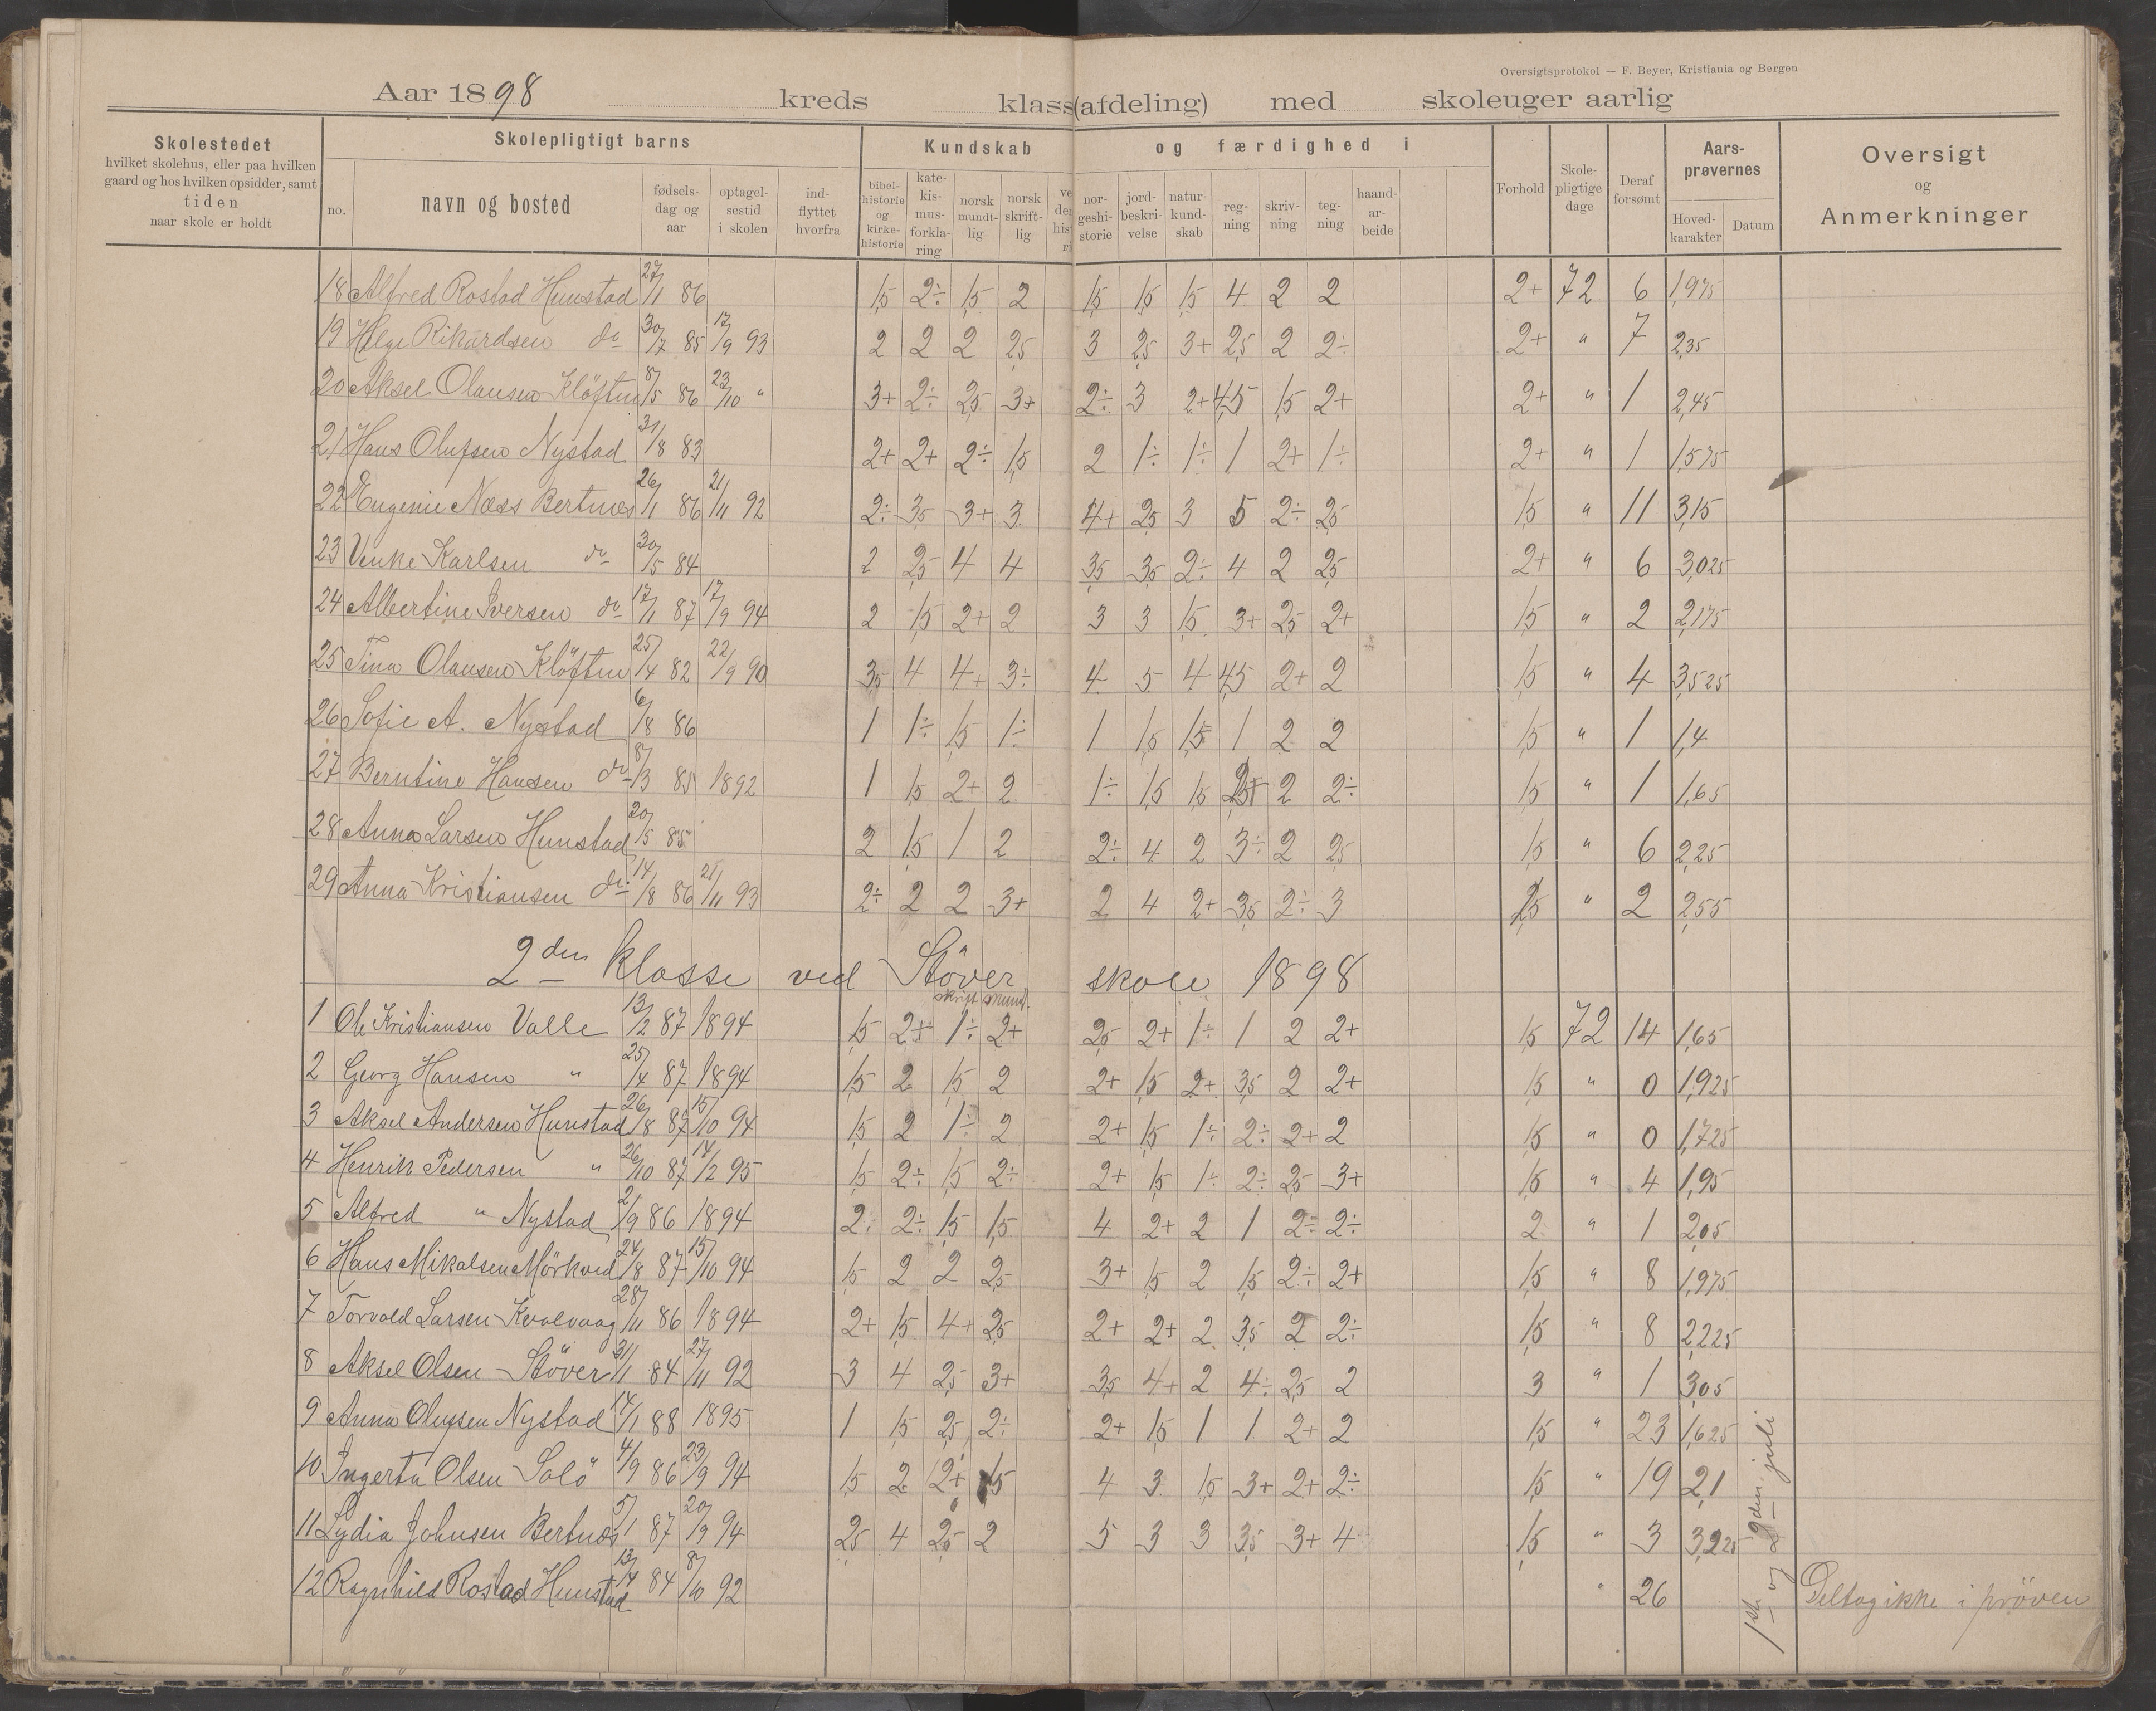 Oversigtsprotokol — F. Beyer, Kristiania og Bergen
Aar 1898 kreds klasse (afdeling) med skoleuger aarlig
Skolestedet
hvilket skolehus, eller paa hvilken
gaard og hos hvilken opsidder, samt
tiden
naar skole er holdt
Skolepligtigt barns
no. navn og bosted
fødsels-
dag og
aar
optagel-
sestid
i skolen
ind-
flyttet
hvorfra
Kundskab og færdighed i
bibel-
historie
og
kirke-
historie
kate-
kis-
mus-
forkla-
ring
norsk
mundt-
lig
norsk
skrift-
lig
nor-
geshi-
storie
jord-
beskri-
velse
natur-
kund-
skab
reg-
ning
skriv-
ning
teg-
ning
haand-
ar-
beide
Forhold
Skole-
pligtige
dage
Deraf
forsømt
Aars-
prøvernes
Hoved-
karakter
Datum
Oversigt
og
Anmerkninger
18 Alfred Rostad Hunstad 27/1 86 1,5 2÷ 1,5 2 1,5 1,5 1,5 4 2 2 2+ 72 6 1,975
19 Helge Rikardsen do 30/7 85 17/9 93 2 2 2 2,5 3 2,5 3+ 2,5 2 2÷ 2+ " 7 2,35
20 Aksel Olausen Klöften 8/5 86 23/10 " 3+ 2÷ 2,5 3+ 2÷ 3 2+ 4,5 1,5 2+ 2+ " 1 2,45
21 Hans Olufsen Nystad 31/8 83 2+ 2+ 2÷ 1,5 2 1÷ 1÷ 1 2+ 1÷ 2+ " 1 1,575
22 Eugenie Næss Bertnes 26/1 86 21/11 92 2÷ 3,5 3+ 3 4+ 2,5 3 5 2÷ 2,5 1,5 " 11 3,15
23 Venke Karlsen do 30/5 84 2 2,5 4 4 3,5 3,5 2÷ 4 2 2,5 2+ " 6 3,025
24 Albertine Iversen do 17/1 87 17/9 94 2 1,5 2+ 2 3 3 1,5 3+ 2,5 2+ 1,5 " 2 2,175
25 Tina Olausen Klöften 25/4 82 22/9 90 3,5 4 4+ 3÷ 4 5 4 4,5 2+ 2 1,5 " 4 3,525
26 Sofie A. Nystad 6/8 86 1 1÷ 1,5 1÷ 1 1,5 1,5 1 2 2 1,5 " 1 1,4
27 Berntine Hansen do 8/3 85 1892 1 1,5 2+ 2 1÷ 1,5 1,5 2 2÷ 1,5 " 1 1,65
28 Anna Larsen Hunstad 20/5 85 2 1,5 1 2 2÷ 4 2 3÷ 2 2,5 1,5 " 6 2,25
29 Anna Kristiansen do 14/8 86 21/11 93 2÷ 2 2 3+ 2 4 2+ 3,5 2÷ 3 1,5 " 2 2,55
2den klasse ved Stöver skole 1898
skriftl. mundl.
1 Ole Kristiansen Valle 13/2 87 1894 1,5 2+ 1÷ 2+ 2,5 2+ 1÷ 1 2 2+ 1,5 72 14 1,65
2 Georg Hansen " 25/4 87 1894 1,5 2 1,5 2 2+ 1,5 2+ 3,5 2 2+ 1,5 " 0 1,925
3 Aksel Andersen Hunstad 26/8 87 15/10 94 1,5 2 1÷ 2 2+ 1,5 1÷ 2÷ 2+ 2 1,5 " 0 1,725
4 Henrik Pedersen " 26/10 87 14/2 95 1,5 2÷ 1,5 2÷ 2+ 1,5 1÷ 2÷ 2,5 3+ 1,5 " 4 1,95
5 Alfred " Nystad 2/9 86 1894 2÷ 2÷ 1,5 1,5 4 2+ 2 1 2÷ 2÷ 2 " 1 2,05
6 Hans Mikalsen Mörkved 24/8 87 15/10 94 1,5 2 2 2,5 3+ 1,5 2 1,5 2÷ 2+ 1,5 " 8 1,975
7 Torvald Larsen Kvalvaag 28/11 86 1894 2+ 1,5 4+ 2,5 2+ 2+ 2 3,5 2 2÷ 1,5 " 8 2,225
8 Aksel Olsen Stöver 31/1 84 27/11 92 3 4 2,5 3+ 3,5 4+ 2 4÷ 2,5 2 3 " 1 3,05
9 Anna Olufsen Nystad 14/1 88 1895 1 1,5 2,5 2÷ 2+ 1,5 1 1 2+ 2 1,5 " 23 1,625
10 Ingerta Olsen Salö 4/9 86 23/9 94 1,5 2 2+ 1,5 4 3 1,5 3+ 2+ 2÷ 1,5 " 19 2,1
11 Lydia Johnsen Bertnæs 5/1 87 20/9 94 2,5 4 2,5 2 5 3 3 3,5 3+ 4 1,5 " 3 3,225
12 Ragnhild Rostad Hunstad 13/4 84 8/10 92 " 26 Deltog ikke i pröven
1ste og 2den juli